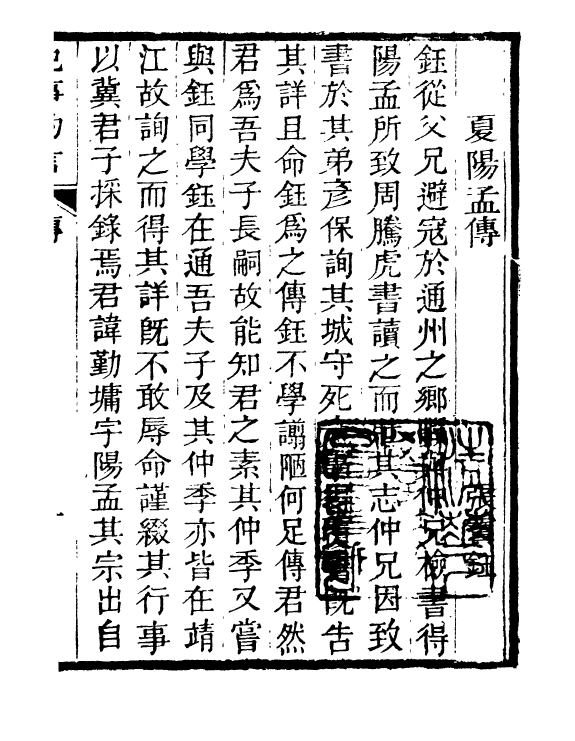 夏陽孟傳
鈺從父兄避寇於通州之鄉仲兄檢書得
陽孟所致周騰虎書讀之而其志仲兄因致
書於其弟彥保詢其城守死旣吿
其詳且命鈺爲之傳鈺不學譾陋何足傳君然
君爲吾夫子長嗣故能知君之素其仲季又嘗
與鈺同學鈺在通吾夫子及其仲季亦皆在靖
江故詢之而得其詳旣不敢辱命謹綴其行事
以冀君子採錄焉君諱勤墉字陽孟其宗出自
傳